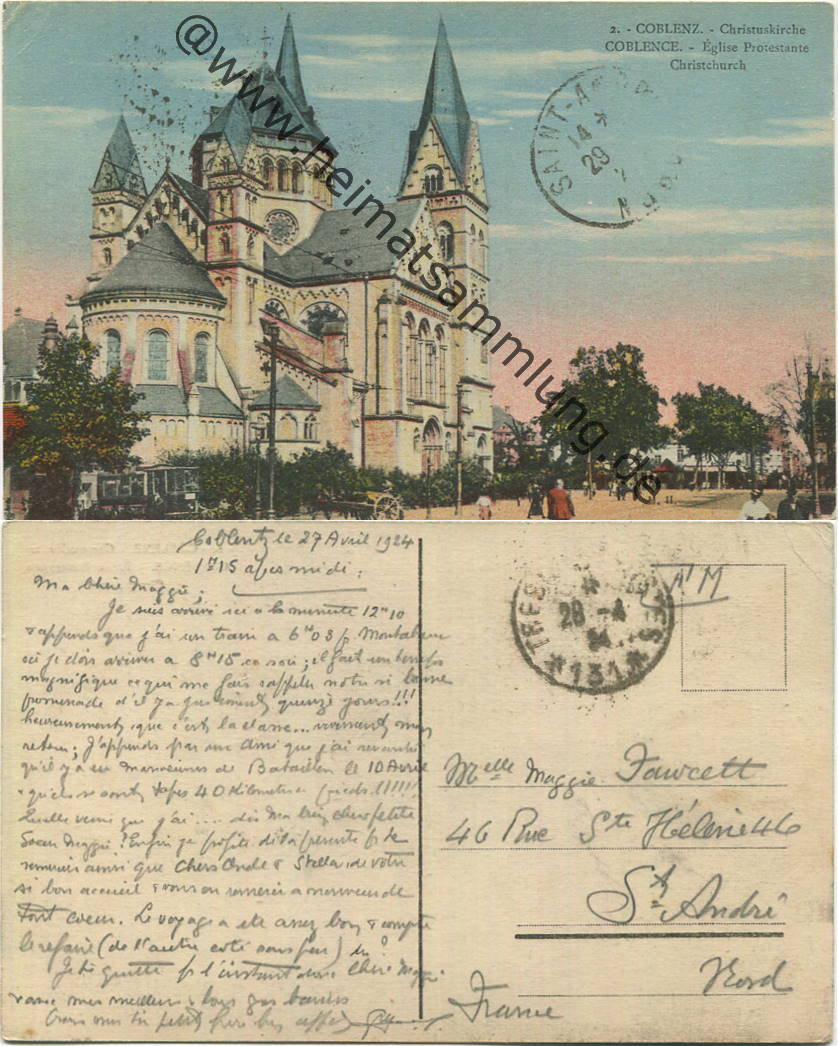 2. - COBLENZ. - Christuskirche
COBLENCE. - Église Protestante
Christchurch
SAINT-ANDR
14 *
29
NORD
@www.heimatsammlung.de
Coblentz le 27 Avril 1924
1H15 après midi :
Ma Chère Maggie,
Je suis arrivé ici à la minute 12H10
& apprends que j'ai un train à 6H03 p. Montabaur
où je dois arriver à 8H15 ce soir ; il fait un temps
magnifique ce qui me fait rappeler notre si bonne
promenade d'il y a quinze jours !!!
heureusement que c'est la classe ... vivement mon
retour ; J'apprends par un Ami que j'ai rencontré
qu'il y a eu Manœuvres de Bataillon le 10 Avril
& qu'ils se sont tapés 40 Kilomètres (pieds !!!!!!
Quelle veine que j'ai .... dis Ma bien chère petite
Sœur Maggie ! Enfin je profite de la présente p. te
remercier ainsi que Chers Oncle & Stella, de votre
si bon accueil & vous en remercie à nouveau de
tout cœur. Le voyage a été assez bon & compte
le refaire (de l'autre côté sous peu) dis ?
Je te quitte p. l'instant donc Chère Maggie
mes meilleurs & plus gros baisers
ton petit frère bien affect
TRES
28 - 4
24
*131*
FM
Melle Maggie Fawcett
46 Rue Ste Hélène 46
St. André
Nord
France